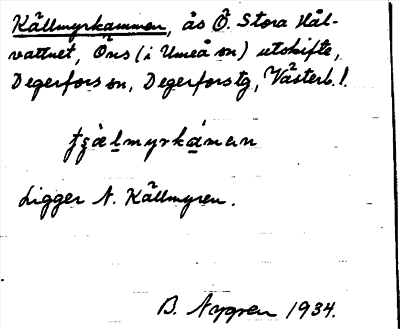 Källmyrkammen, ås Ö. Stora Hål-
vattnet, Öns (i Umeå sn) utskifte,
Degerfors sn, Degerfors tg, Västerb. l.
Ligger N. Källmyren.
B. Nygren 1934.